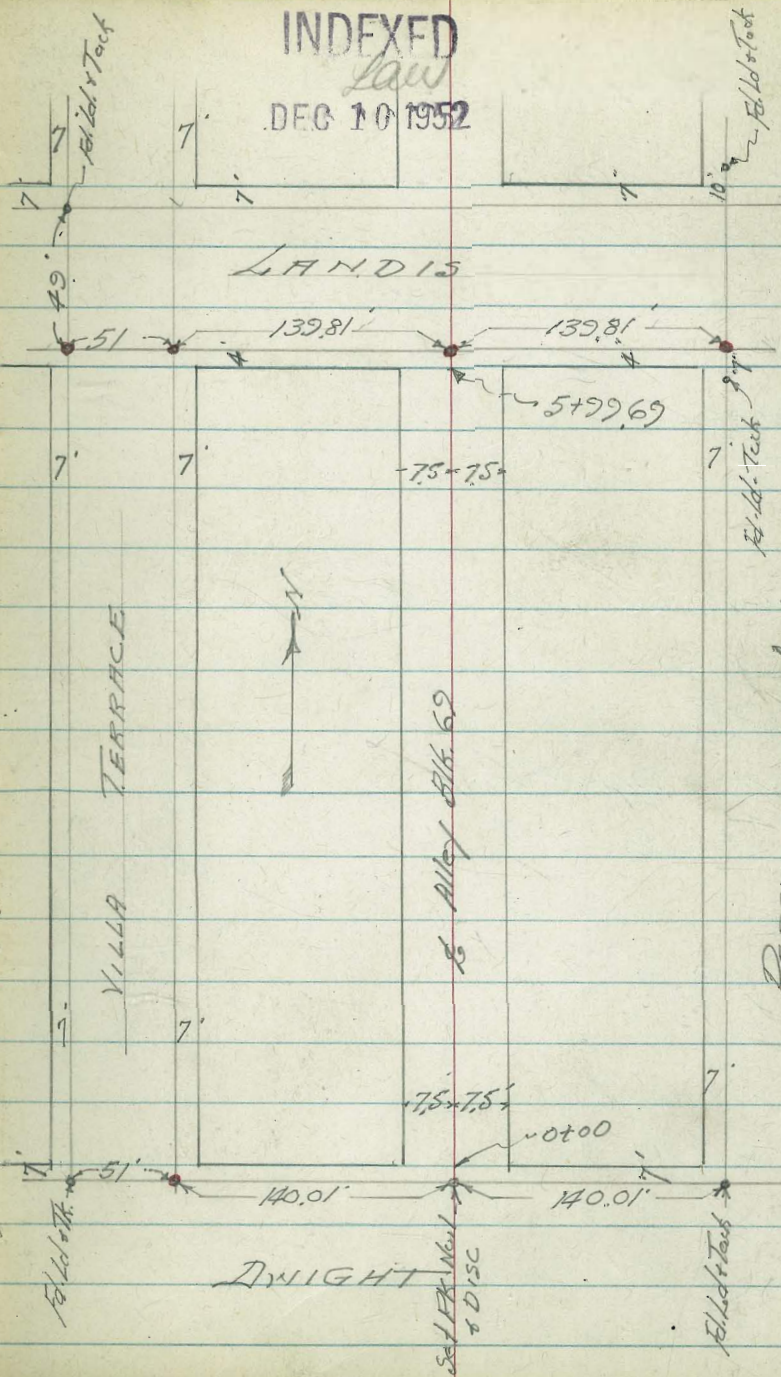 INDEXED
Law
DEC 10 1952
Fd. Ld & Tack
Fd. Ld & Tack
7'
7'
7'
7'
7'
10'
LANDIS
49'
51
139.81'
139.81'
4'
4'
5+99.69
Fd. Ld. Tack
7'
7'
7.5
7.5
7'
N
VILLA TERRACE
℄ Alley Blk. 69
7'
7'
7.5
7.5'
7'
0+00
7'
51'
140.01'
140.01'
7'
Fd. Ld & Tk.
DWIGHT
Set PK Nail
& DISC
Fd. Ld & Tack